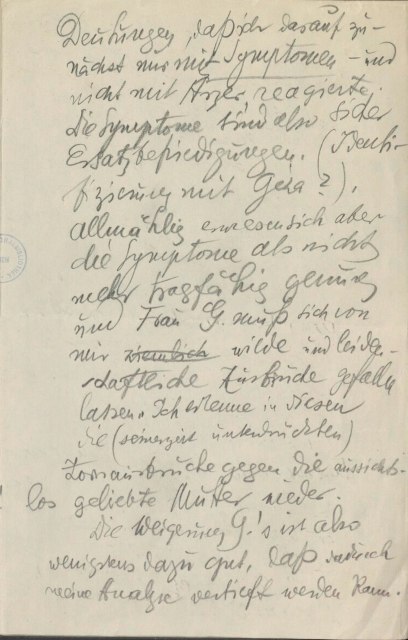 Deutungen, daß ich darauf zu-
nächst nur mit Symptomen – und
nicht mit Ärger, reagierte.
Die Symptome sind also sicher
Ersatzbefriedigungen. (Identi-
fizierung mit Géza?).
allmählig erwiesen sich aber
die Symptome als nicht
mehr tragfähig genug
und Frau G. muß sich von
mir ziemlich wilde und leiden-
schaftliche Ausbrüche gefallen
lassen. Ich erkenne in diesen
die (seinerzeit unterdrückten)
Zornausbrüche gegen die aussichts-
los geliebte Mutter wieder.
Die Weigerung G.'s ist also
wenigstens dazu gut, daß dadurch
meine Analyse vertieft werden kann.